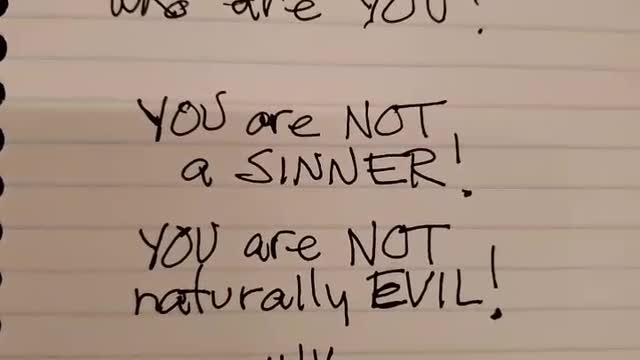 who are YOU?
YOU are NOT
a SINNER!
YOU are NOT
naturally EVIL!